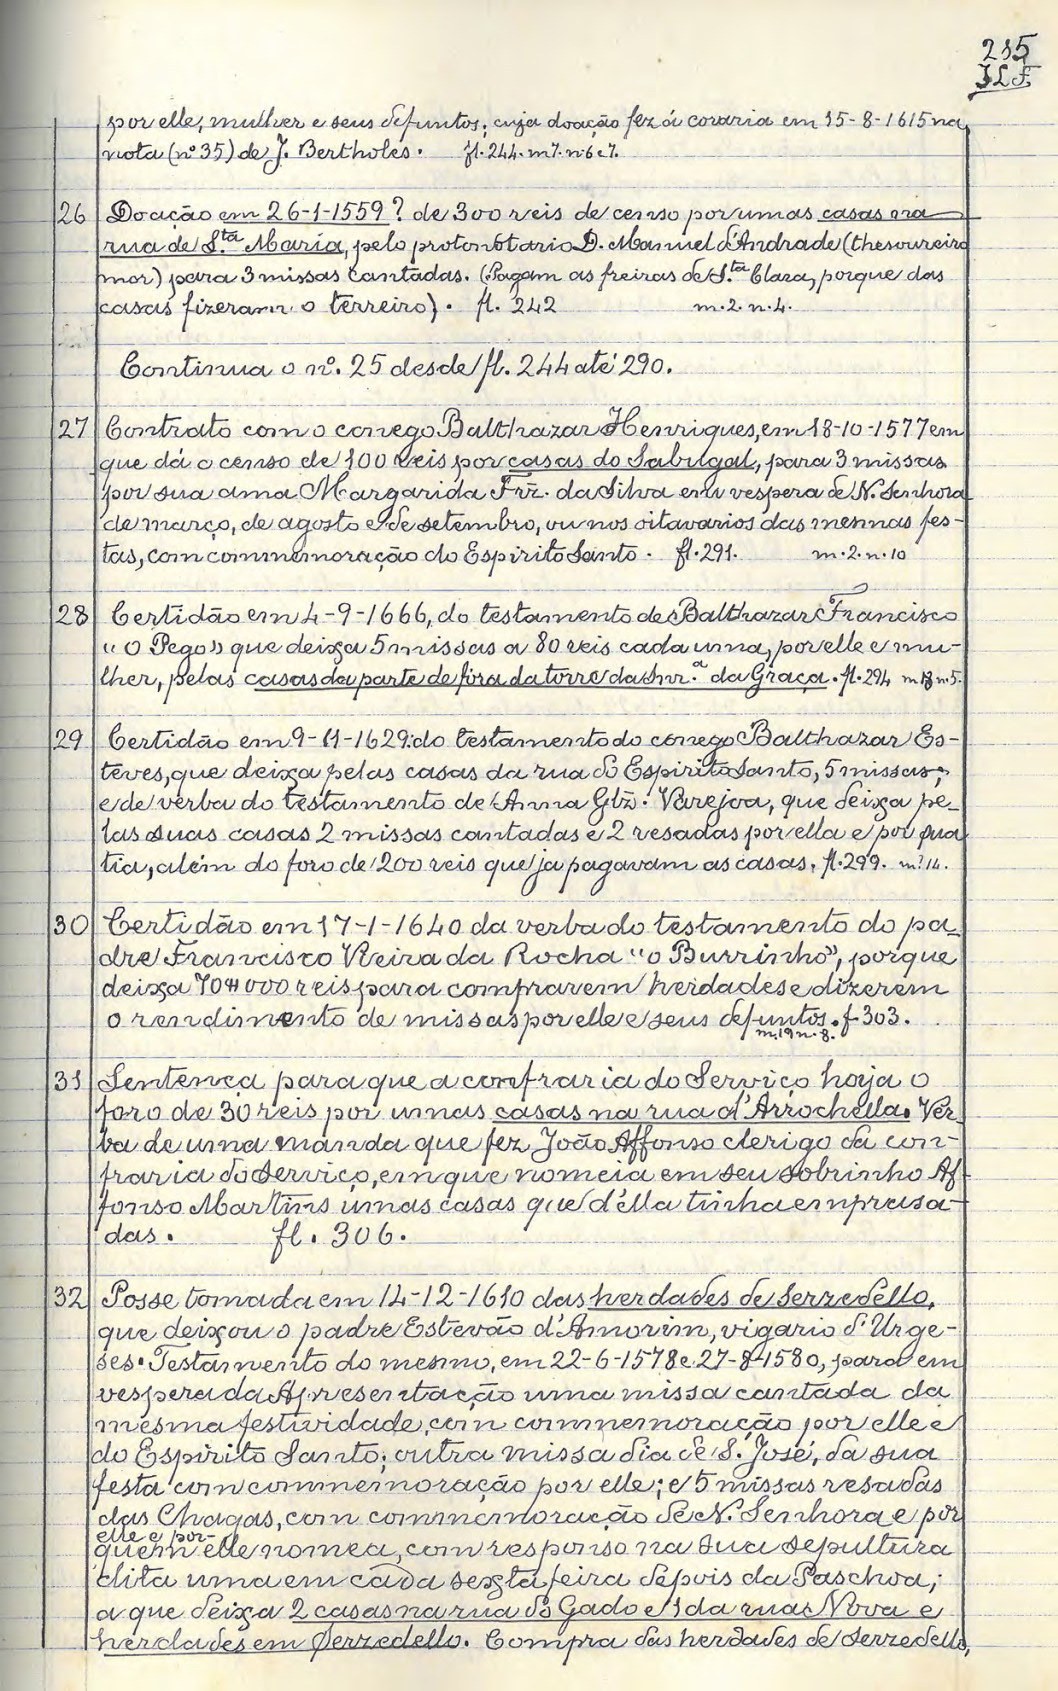 215
J.L.F.
por elle, mulher e seus defuntos; cuja doação fez á coraria em 15-8-1615 na
nota (nº 35) de J. Bertholes. fl. 244. m 7. n. 6 e 7.
26 Doação em 26-1-1559? de 300 reis de censo por umas casas na
rua de S.ta Maria, pelo protonotario D. Manuel d'Andrade (thesoureiro
mor) para 3 missas cantadas. (Pagam as freiras de S.ta Clara, porque das
casas fizeram o terreiro). fl. 242 m. 2. n. 4.
Continua o nº. 25 desde fl. 244 até 290.
27 Contrato com o conego Balthazar Henriques, em 18-10-1577 em
que dá o censo de 100 reis por casas do Sabugal, para 3 missas
por sua ama Margarida Frz. da Silva em vespera de N. Senhora
de março, de agosto e de setembro, ou nos oitavarios das mesmas fes-
tas, com commemoração do Espirito Santo. fl. 291. m. 2. n. 10
28 Certidão em 4-9-1666, do testamento de Balthazar Francisco
"O Pego" que deixa 5 missas a 80 reis cada uma, por elle e mu-
lher, pelas casas da parte de fóra da torre da Snr.ª da Graça. fl. 294 m n. 5.
29 Certidão em 9-11-1629: do testamento do conego Balthazar Es-
teves, que deixa pelas casas da rua do Espirito Santo, 5 missas;
e de verba do testamento de Anna Glz. Varejoa, que deixa pe-
las suas casas 2 missas cantadas e 2 resadas por ella e por sua
tia, além do foro de 200 reis que ja pagavam as casas. fl. 299. m. 14.
30 Certidão em 17-1-1640 da verba do testamento do pa-
dre Francisco Vieira da Rocha "o Burrinho", porque
deixa 70#000 reis para comprarem herdades e dizerem
o rendimento de missas por elle e seus defuntos. f 303.
m. 19 n. 8.
31 Sentença para que a confraria do Serviço haja o
foro de 30 reis por umas casas na rua d'Arrochella. Ver-
ba de uma manda que fez João Affonso clerigo da con-
fraria do serviço, em que nomeia em seu sobrinho Af-
fonso Martins umas casas que d'ella tinha emprasa-
das. fl. 306.
32 Posse tomada em 14-12-1610 das herdades de Serzedello,
que deixou o padre Estevão d'Amorim, vigario d'Urge-
ses. Testamento do mesmo, em 22-6-1578 e 27-8-1580, para em
vespera da Apresentação uma missa cantada da
mesma festividade, com commemoração por elle e
do Espirito Santo; outra missa dia de S. José, da sua
festa com commemoração por elle; e 5 missas resadas
das Chagas, com commemoração de N. Senhora e por
elle e por
quem elle nomea, com responso na sua sepultura
dita uma em cada sexta feira depois da Paschoa;
a que deixa 2 casas na rua do Gado e 1 da rua Nova e
herdades em Serzedello. Compra das herdades de Serzedello,